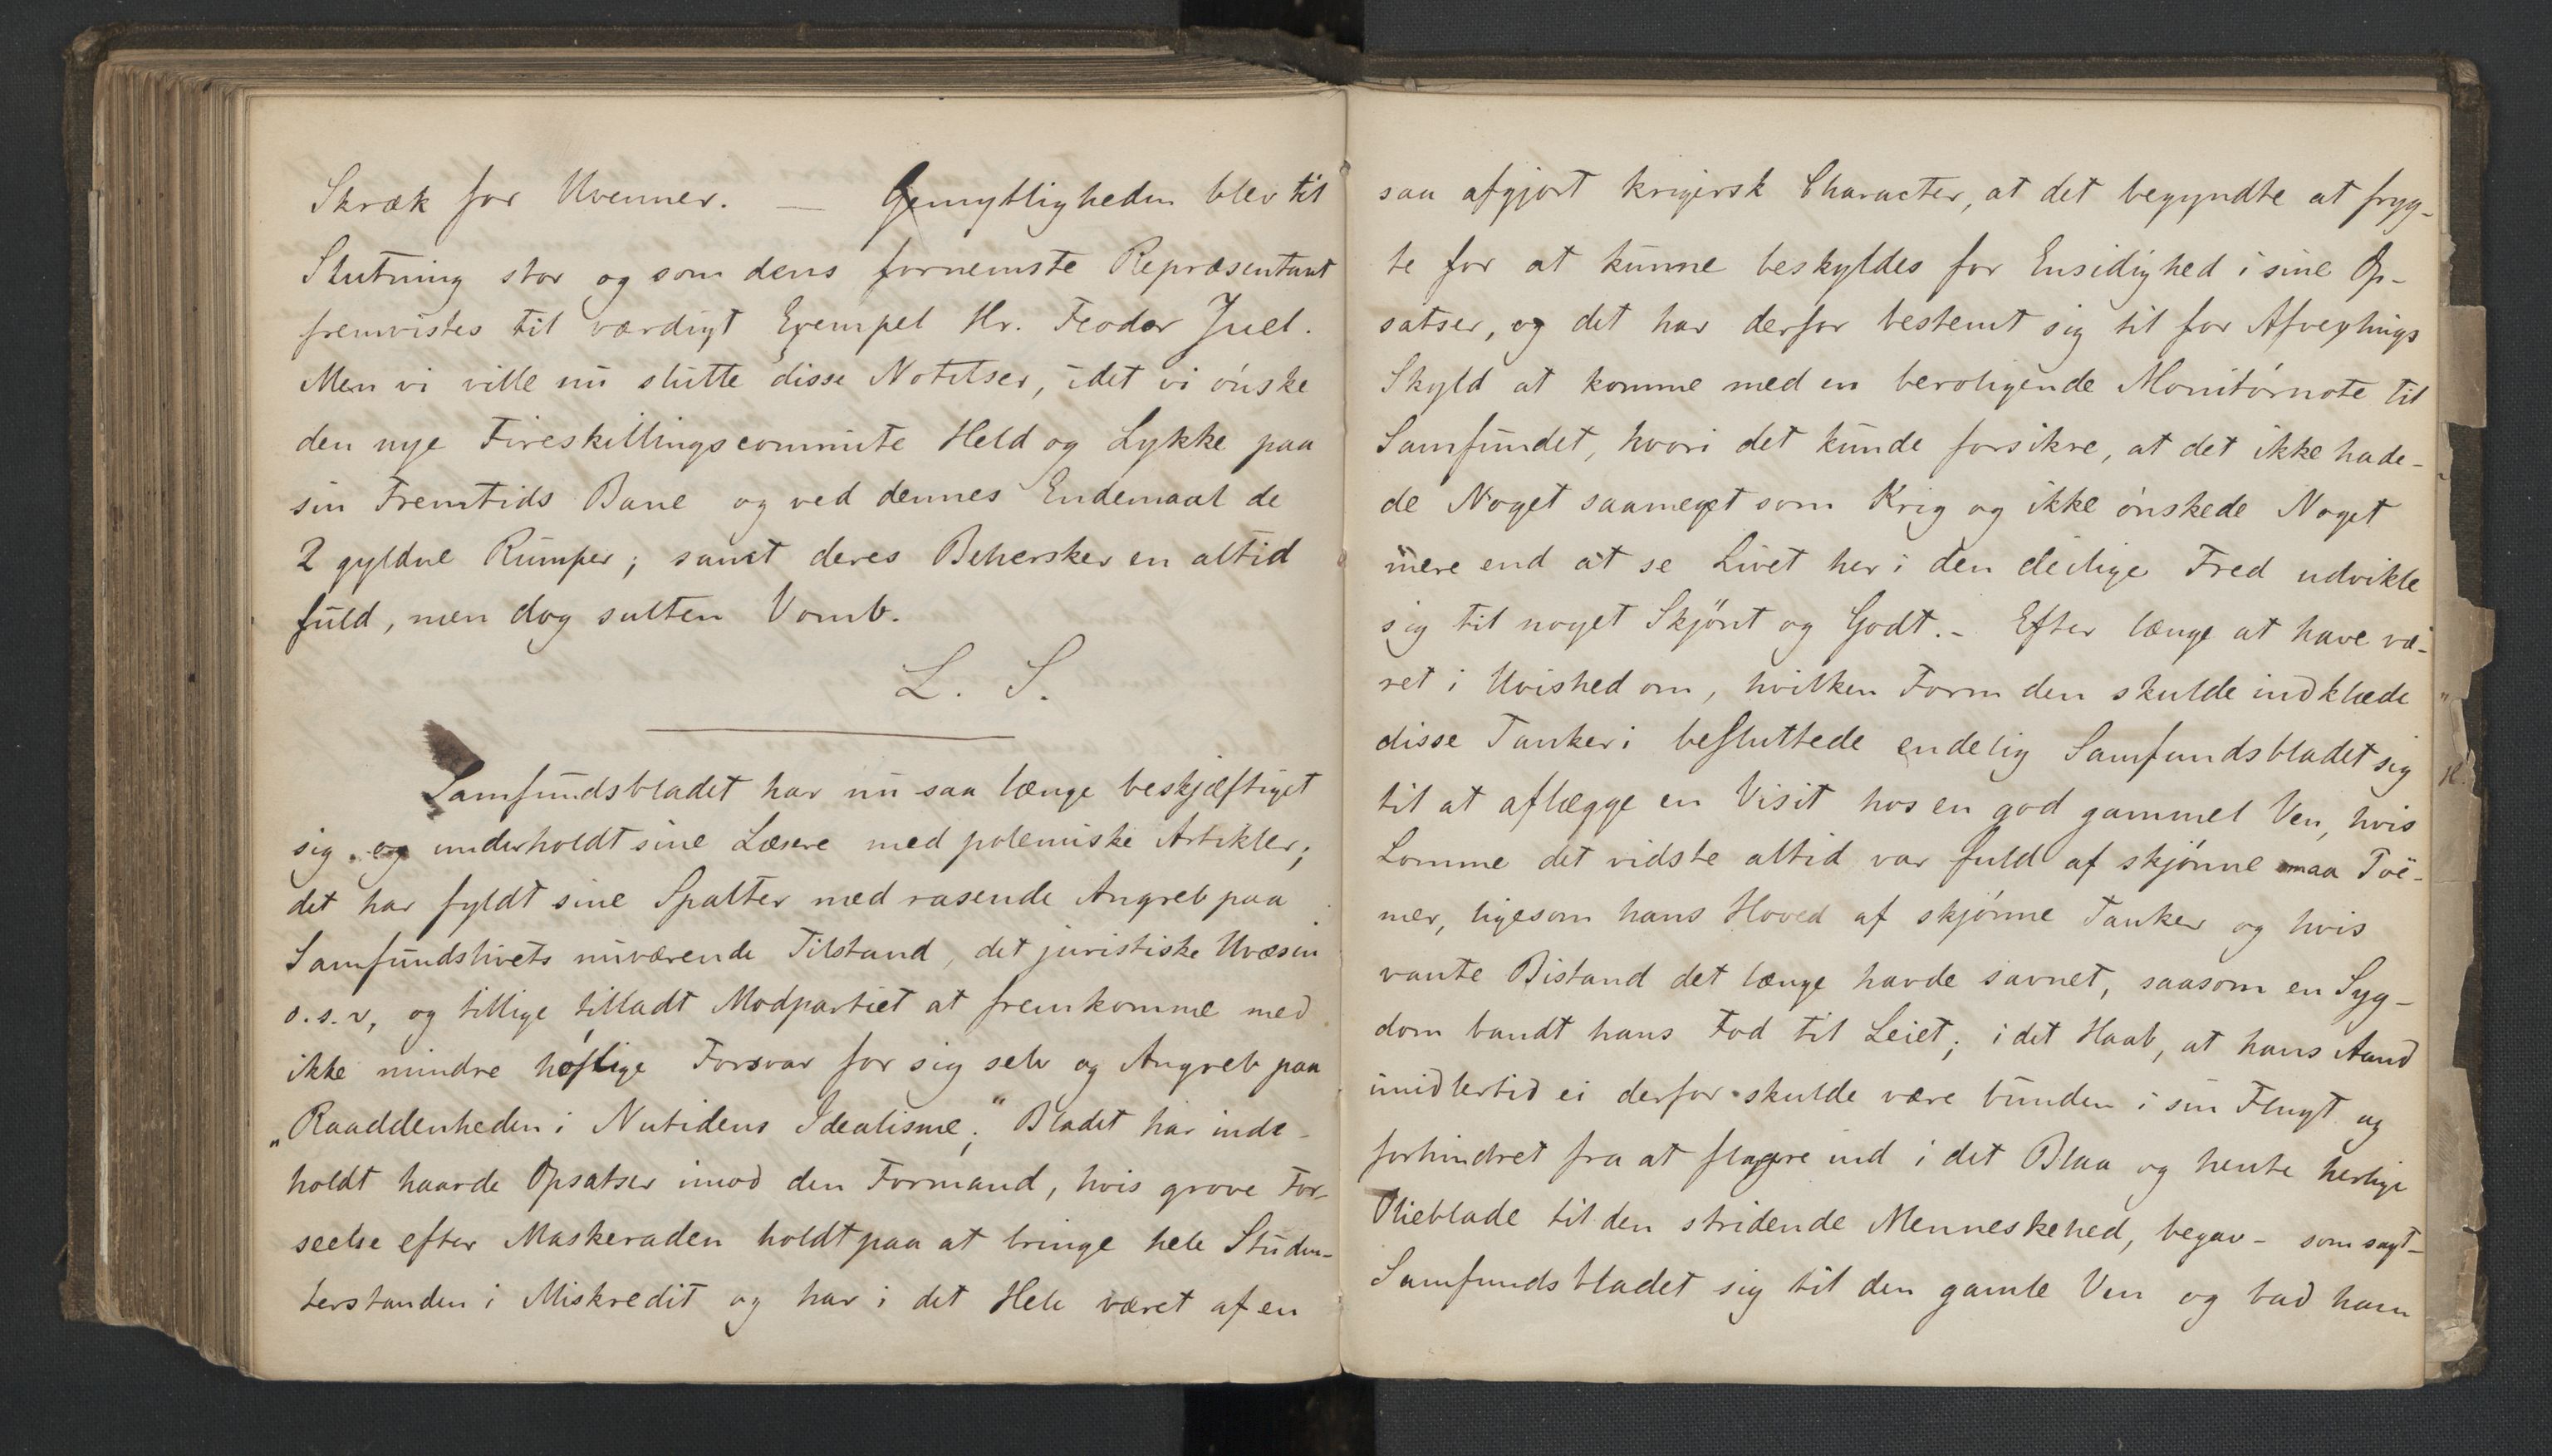 Skræk for Uvenner. — Gemytligheden blev til
Slutning stor og som dens fornemste Repræsentant
fremvistes til værdigt Exempel Hr. Feodor Juel.
Men vi ville nu slutte disse Notitser, idet vi ønske
den nye Fireskillingscommite Held og Lykke paa
sin Fremtids Bane og ved dennes Endemaal de
2 gyldne Rumper; samt deres Behersker en altid
fuld, men dog sulten Vomb.
L. S.
Samfundsbladet har nu saa længe beskjæftiget
sig og underholdt sine Læsere med polemiske Artikler;
det har fyldt sine Spalter med rasende Angreb paa
Samfundslivets nuværende Tilstand, det juristiske Uvæsen
o.s.v, og tillige tilladt Modpartiet at fremkomme med
ikke mindre høflige Forsvar for sig selv og Angreb paa
„Raaddenheden i Nutidens Idealisme;" Bladet har inde-
holdt haarde Opsatser imod den Formand, hvis grove For-
seelse efter Maskeraden holdt paa at bringe hele Studen-
terstanden i Miskredit og har i det Hele været af en
saa afgjort krigersk Character, at det begyndte at fryg-
te for at kunne beskyldes for Ensidighed i sine Op-
satser, og det har derfor bestemt sig til for Afvexlings
Skyld at komme med en beroligende Monitørnote til
Samfundet, hvori det kunde forsikre, at det ikke hade-
de Noget saameget som Krig og ikke ønskede Noget
mere end at se Livet her i den deilige Fred udvikle
sig til noget Skjønt og Godt. – Efter længe at have væ-
ret i Uvished om, hvilken Form den skulde indklæde
disse Tanker i besluttede endelig Samfundsbladet sig
til at aflægge en Visit hos en god gammel Ven, hvis
Lomme det vidste altid var fuld af skjønne smaa Toë-
mer, ligesom hans Hoved af skjønne Tanker og hvis
vante Bistand det længe havde savnet, saasom en Syg-
dom bandt hans Fod til Leiet; i det Haab, at hans Aand
imidlertid ei derfor skulde være bunden i sin Flugt og
forhindret fra at flagre ind i det Blaa og hente herlige
Olieblade til den stridende Menneskehed, begav – som sagt –
Samfundsbladet sig til den gamle Ven og bad ham